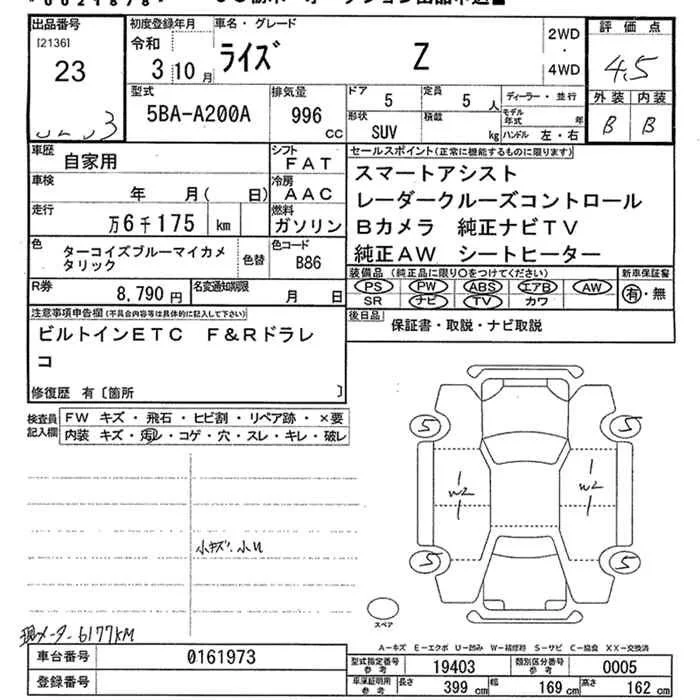 出品番号
[2136]
23
初度登録年月
令和
3 10 月
車名・グレード
ライズ Z
2WD
・
4WD
評価点
4.5
外装 内装
B B
型式
5BA-A200A
排気量
996
CC
ドア
5
定員
5 人
形状
SUV
積載
kg
ディーラー・並行
モデル年式 年
ハンドル 左・右
車歴
自家用
シフト
FAT
車検
年 月( 日)
冷房
AAC
走行
万6千175 km
燃料
ガソリン
色
ターコイズブルーマイカメ
タリック
色替
色コード
B86
R券
8,790 円
名変通知期限
月 日
セールスポイント(正常に機能するものに限ります)
スマートアシスト
レーダークルーズコントロール
Bカメラ 純正ナビTV
純正AW シートヒーター
装備品(純正品に限り○をつけてください)
PS PW ABS エアB AW
SR ナビ TV カワ
新車保証書
有・無
後日品
保証書・取説・ナビ取説
注意事項申告欄(不具合内容等は具体的に記入して下さい)
ビルトインETC F&Rドラレ
コ
修復歴 有〔箇所 〕
検査員
記入欄
FW キズ・飛石・ヒビ割・リペア跡・×要
内装 キズ・汚レ・コゲ・穴・スレ・キレ・破レ
小キズ.小U
現メーター6177KM
5 5
1 1
W2 W2
1 1
5 5
スペア
A-キズ E-エクボ U-凹み W-補修跡 S-サビ C-腐食 XX-交換済
車台番号
0161973
登録番号
型式指定番号
参考
19403
類別区分番号
参考
0005
車庫証明用
参考
長さ
399 cm
幅
169 cm
高さ
162 cm